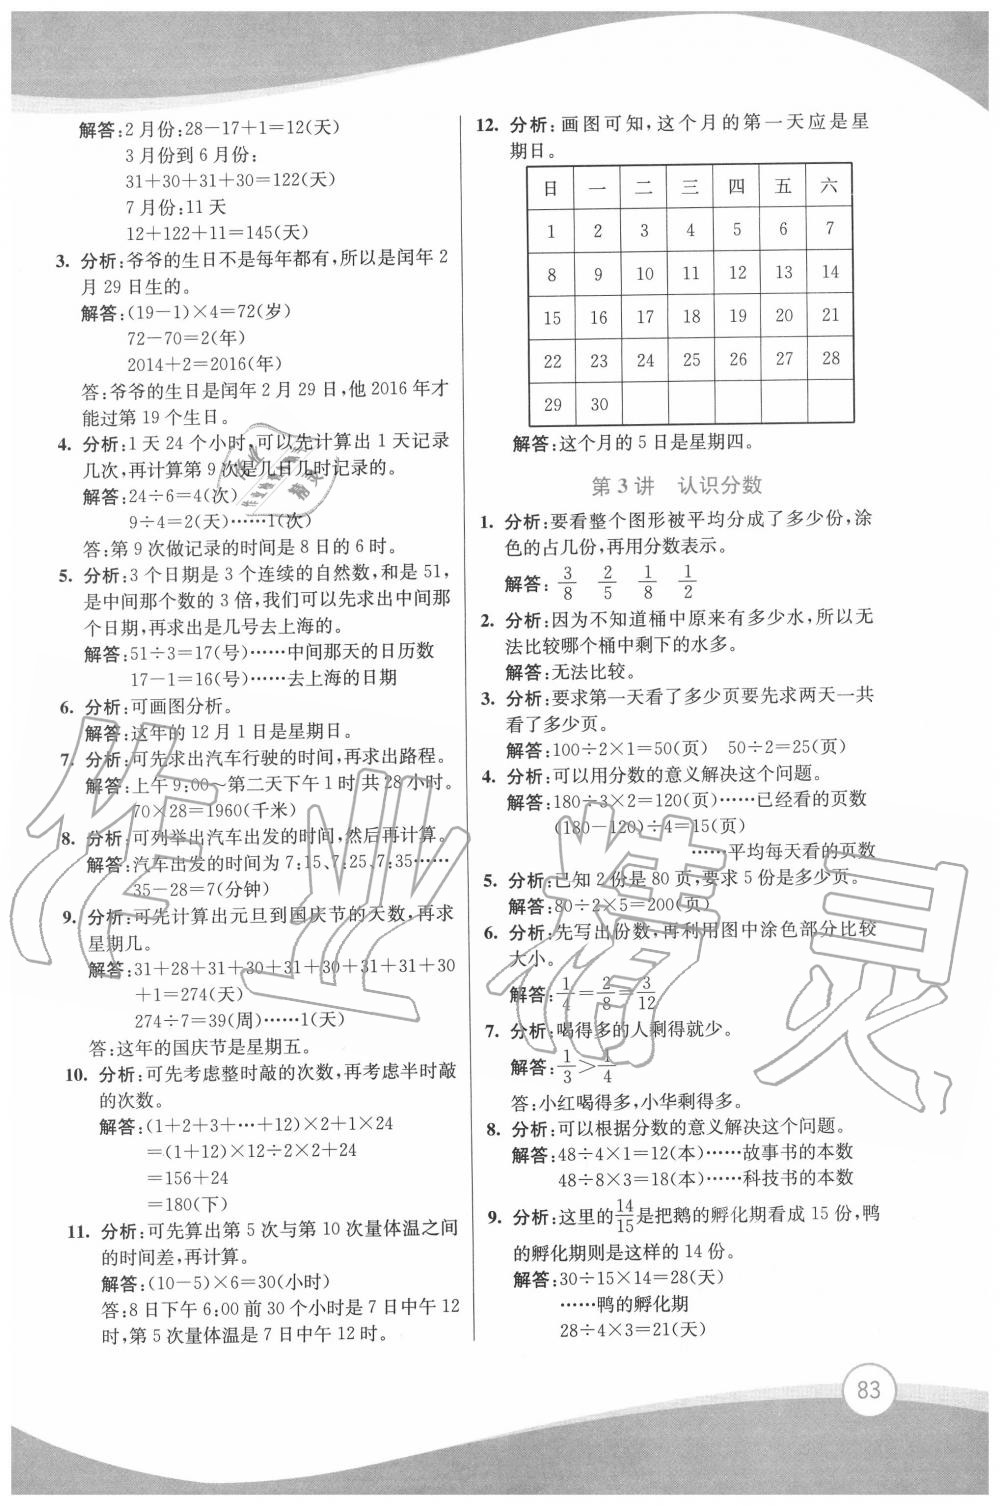 解答:2月份:28－17＋1＝12(天)
3月份到6月份:
31＋30＋31＋30＝122(天)
7月份:11天
12＋122＋11＝145(天)
3. 分析:爷爷的生日不是每年都有,所以是闰年2
月29日生的。
解答:(19－1)×4＝72(岁)
72－70＝2(年)
2014＋2＝2016(年)
答:爷爷的生日是闰年2月29日,他2016年才
能过第19个生日。
4. 分析:1天24个小时,可以先计算出1天记录
几次,再计算第9次是几日几时记录的。
解答:24÷6＝4(次)
9÷4＝2(天)……1(次)
答:第9次做记录的时间是8日的6时。
5. 分析:3个日期是3个连续的自然数,和是51,
是中间那个数的3倍,我们可以先求出中间那
个日期,再求出是几号去上海的。
解答:51÷3＝17(号)……中间那天的日历数
17－1＝16(号)……去上海的日期
6. 分析:可画图分析。
解答:这年的12月1日是星期日。
7. 分析:可先求出汽车行驶的时间,再求出路程。
解答:上午9:00～第二天下午1时共28小时。
70×28＝1960(千米)
8. 分析:可列举出汽车出发的时间,然后再计算。
解答:汽车出发的时间为7:15、7:25、7:35……
35－28＝7(分钟)
9. 分析:可先计算出元旦到国庆节的天数,再求
星期几。
解答:31＋28＋31＋30＋31＋30＋31＋31＋30
＋1＝274(天)
274÷7＝39(周)……1(天)
答:这年的国庆节是星期五。
10. 分析:可先考虑整时敲的次数,再考虑半时敲
的次数。
解答:(1＋2＋3＋…＋12)×2＋1×24
＝(1＋12)×12÷2×2＋24
＝156＋24
＝180(下)
11. 分析:可先算出第5次与第10次量体温之间
的时间差,再计算。
解答:(10－5)×6＝30(小时)
答:8日下午6:00前30个小时是7日中午12
时,第5次量体温是7日中午12时。
12. 分析:画图可知,这个月的第一天应是星
期日。
日 一 二 三 四 五 六
1 2 3 4 5 6 7
8 9 10 11 12 13 14
15 16 17 18 19 20 21
22 23 24 25 26 27 28
29 30
解答:这个月的5日是星期四。
第3讲 认识分数
1. 分析:要看整个图形被平均分成了多少份,涂
色的占几份,再用分数表示。
解答: 3/8 2/5 1/8 1/2
2. 分析:因为不知道桶中原来有多少水,所以无
法比较哪个桶中剩下的水多。
解答:无法比较。
3. 分析:要求第一天看了多少页要先求两天一共
看了多少页。
解答:100÷2×1＝50(页) 50÷2＝25(页)
4. 分析:可以用分数的意义解决这个问题。
解答:180÷3×2＝120(页)……已经看的页数
(180－120)÷4＝15(页)
……平均每天看的页数
5. 分析:已知2份是80页,要求5份是多少页。
解答:80÷2×5＝200(页)
6. 分析:先写出份数,再利用图中涂色部分比较
大小。
解答: 1/4＝2/8＝3/12
7. 分析:喝得多的人剩得就少。
解答: 1/3＞1/4
答:小红喝得多,小华剩得多。
8. 分析:可以根据分数的意义解决这个问题。
解答:48÷4×1＝12(本)……故事书的本数
48÷8×3＝18(本)……科技书的本数
9. 分析:这里的14/15是把鹅的孵化期看成15份,鸭
的孵化期则是这样的14份。
解答:30÷15×14＝28(天)
……鸭的孵化期
28÷4×3＝21(天)
83
作业精灵